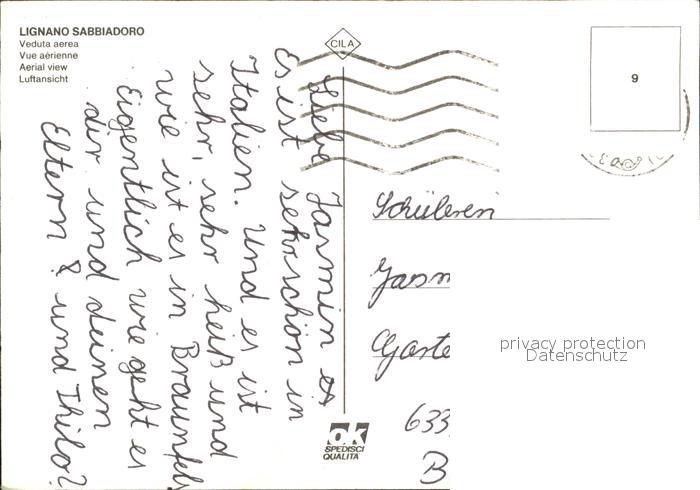 LIGNANO SABBIADORO
Veduta aerea
Vue aérienne
Aerial view
Luftansicht
CILA
9
Liebe Jasmin es
Es ist sehr schön in
Italien. Und es ist
sehr, sehr heiß und
wie ist es in Braunfels
Eigentlich wie geht es
dir und deinen
Eltern? und Thilo?
Schüleren
Jasm
Garte
633
B
privacy protection
Datenschutz
ok
SPEDISCI
QUALITÀ